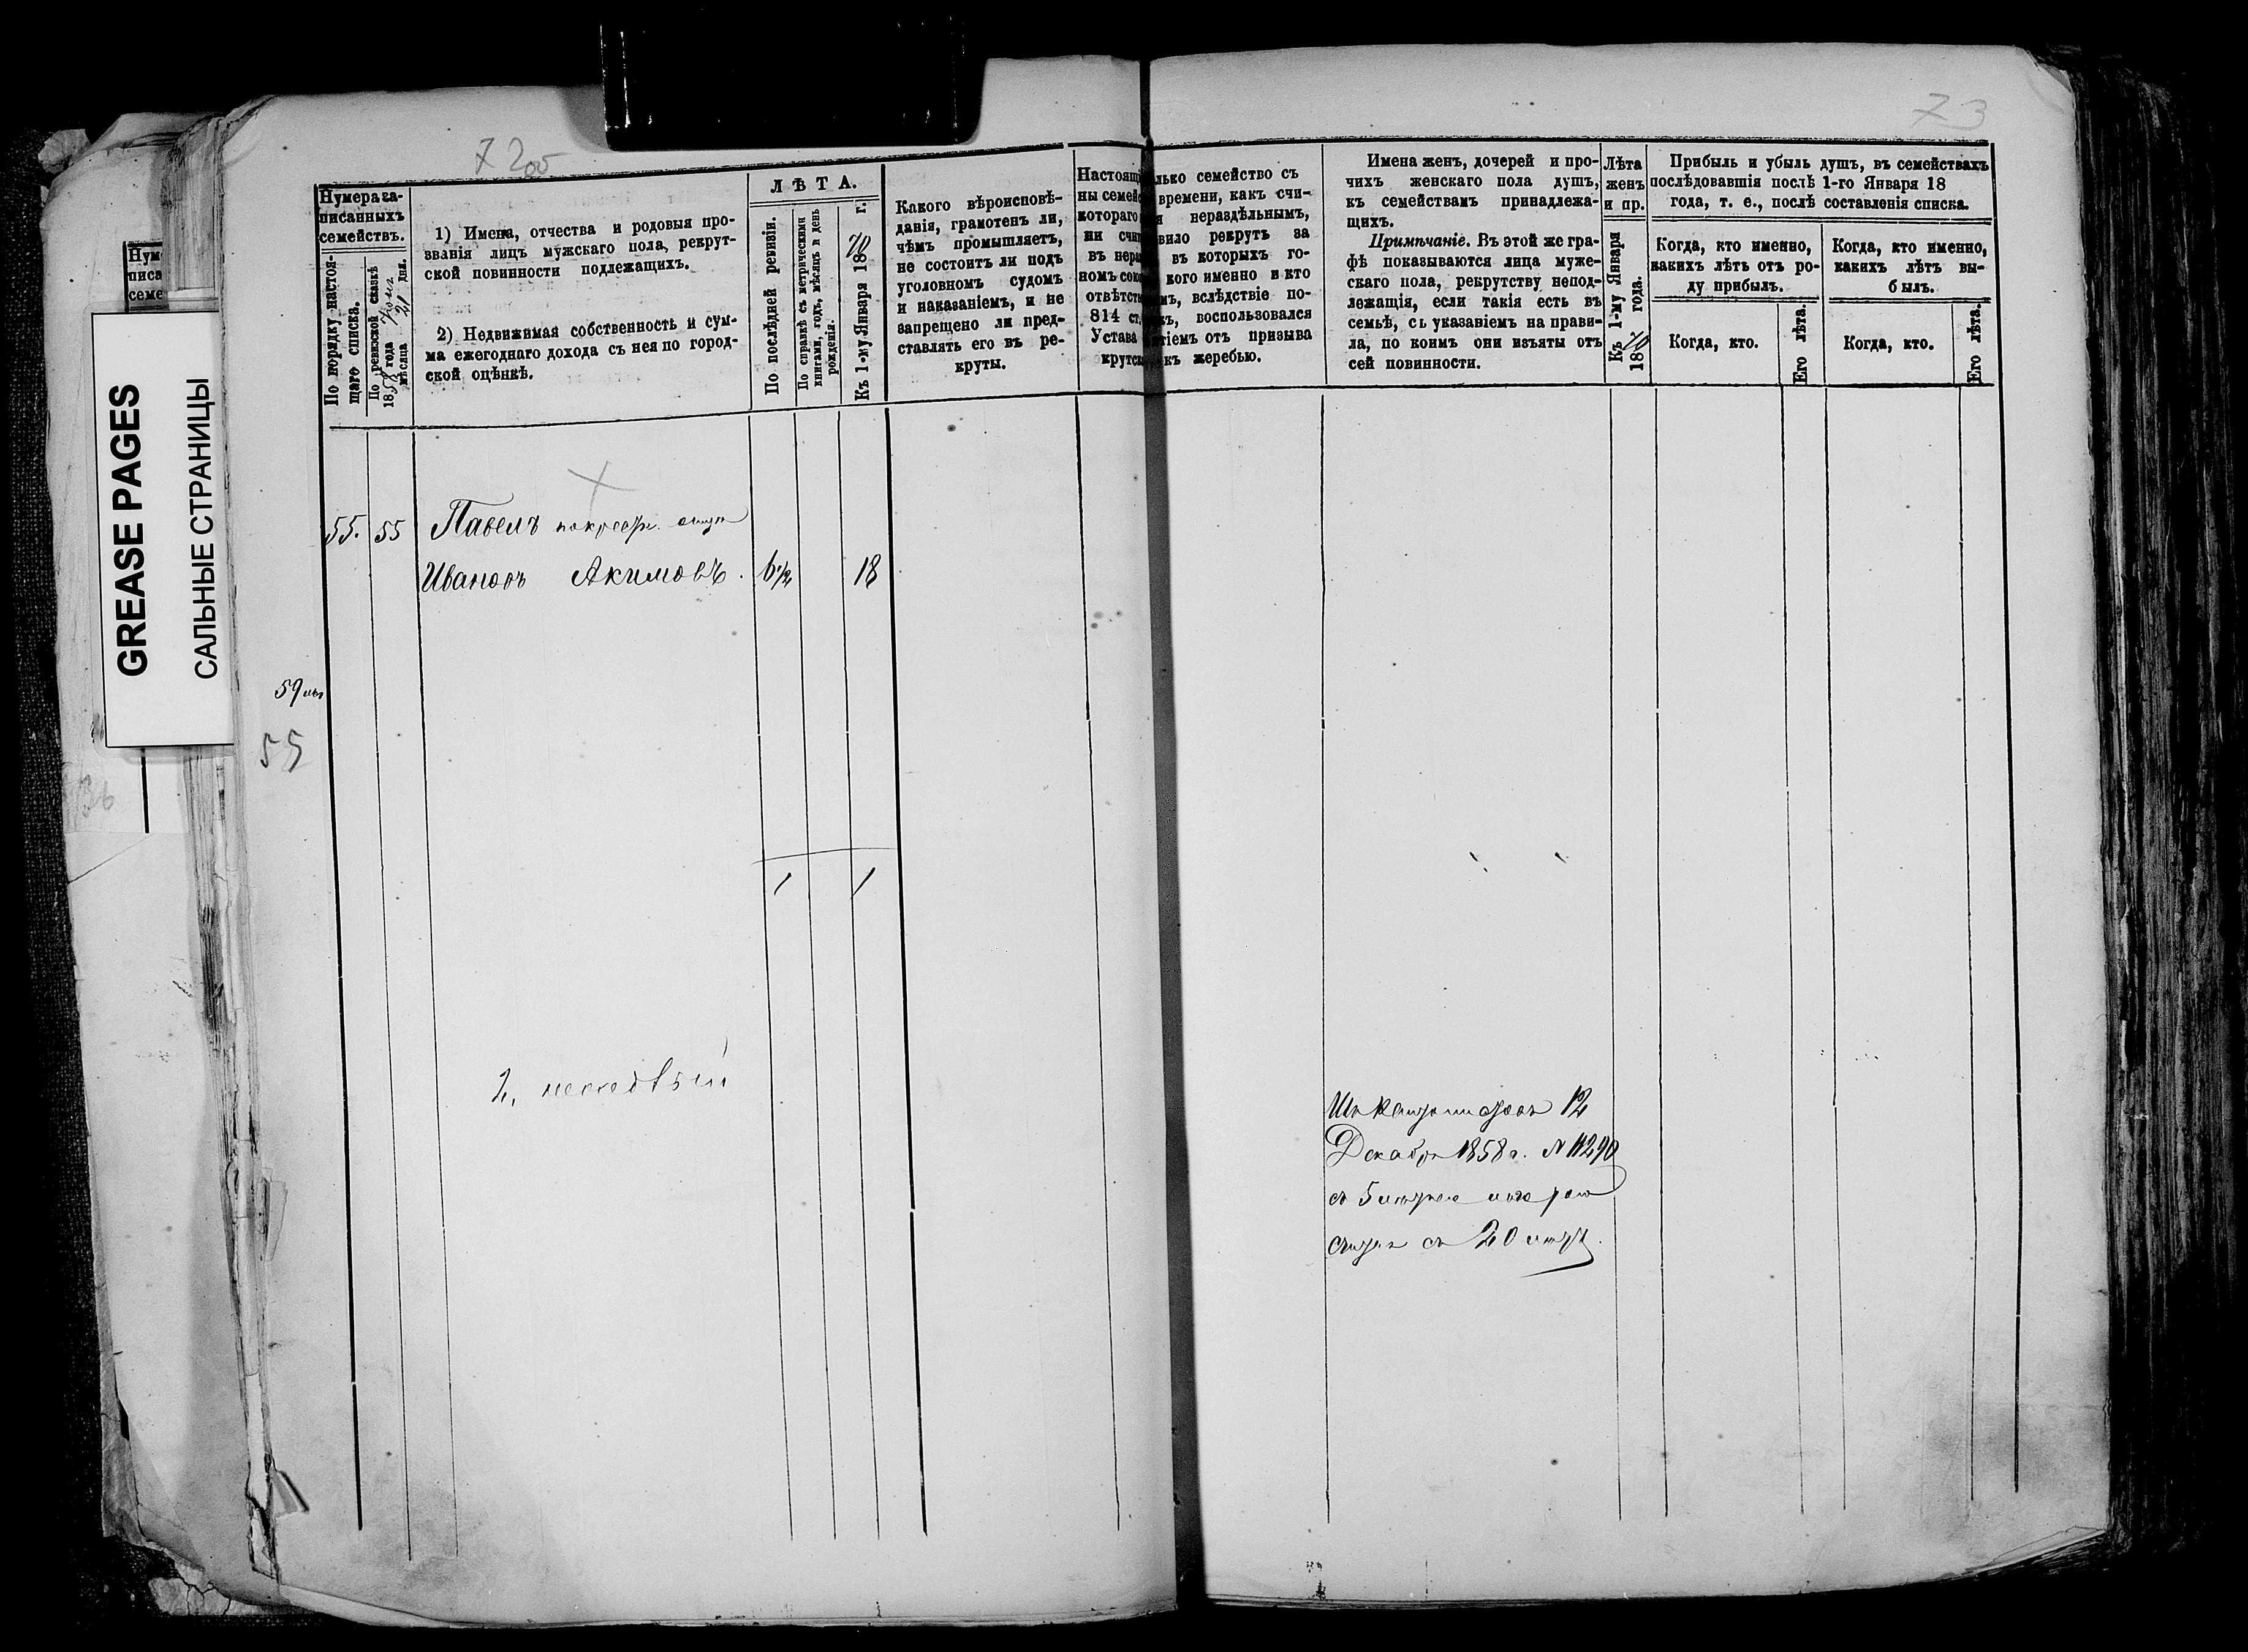 GREASE PAGES
САЛЬНЫЕ СТРАНИЦЫ
Нум
писа
семе
72об
73
Нумера за-
писанныхъ
семействъ.
По порядку настоя-
щаго списка.
По ревизской сказкѣ
1858 года
мѣсяца 21 дня.
1) Имена, отчества и родовыя про-
званія лицъ мужскаго пола, рекрут-
ской повинности подлежащихъ.
2) Недвижимая собственность и сум-
ма ежегоднаго дохода съ нея по город-
ской оцѣнкѣ.
ЛѢТА.
По послѣдней ревизіи.
По справкѣ съ метрическими
книгами, годъ, мѣсяцъ и день
рожденія.
Къ 1-му Января 1870 г.
Какого вѣроисповѣ-
данія, грамотенъ ли,
чѣмъ промышляетъ,
не состоитъ ли подъ
уголовномъ судомъ
и наказаніемъ, и не
запрещено ли пред-
ставлять его въ ре-
круты.
Настоящ
ны семей
котораго
ни счит
въ нера
номъ сок
отвѣтст
814 ст.
Устава
крутск
лько семейство съ
времени, какъ счи-
я нераздѣльнымъ,
вило рекрутъ за
въ которыхъ го-
кого именно и кто
мъ, вслѣдствіе по-
къ, воспользовался
тіемъ отъ призыва
къ жеребью.
Имена женъ, дочерей и про-
чихъ женскаго пола душъ,
къ семействамъ принадлежа-
щихъ.
Примѣчаніе. Въ этой же гра-
фѣ показываются лица муже-
скаго пола, рекрутству непод-
лежащія, если такія есть въ
семьѣ, съ указаніемъ на прави-
ла, по коимъ они изъяты отъ
сей повинности.
Лѣта
женъ
и пр.
Къ 1-му Января
1870 года.
Прибыль и убыль душъ, въ семействахъ
послѣдовавшія послѣ 1-го Января 18
года, т. е., послѣ составленія списка.
Когда, кто именно,
какихъ лѣтъ отъ ро-
ду прибылъ.
Когда, кто именно,
какихъ лѣтъ вы-
былъ.
Когда, кто.
Его лѣта.
Когда, кто.
Его лѣта.
55. 55 Павелъ
Ивановъ Акимовъ. 6 1/2 18
59
55
1 1
2,
12
Декабря 1858 г. № 11290
съ 5
съ 20